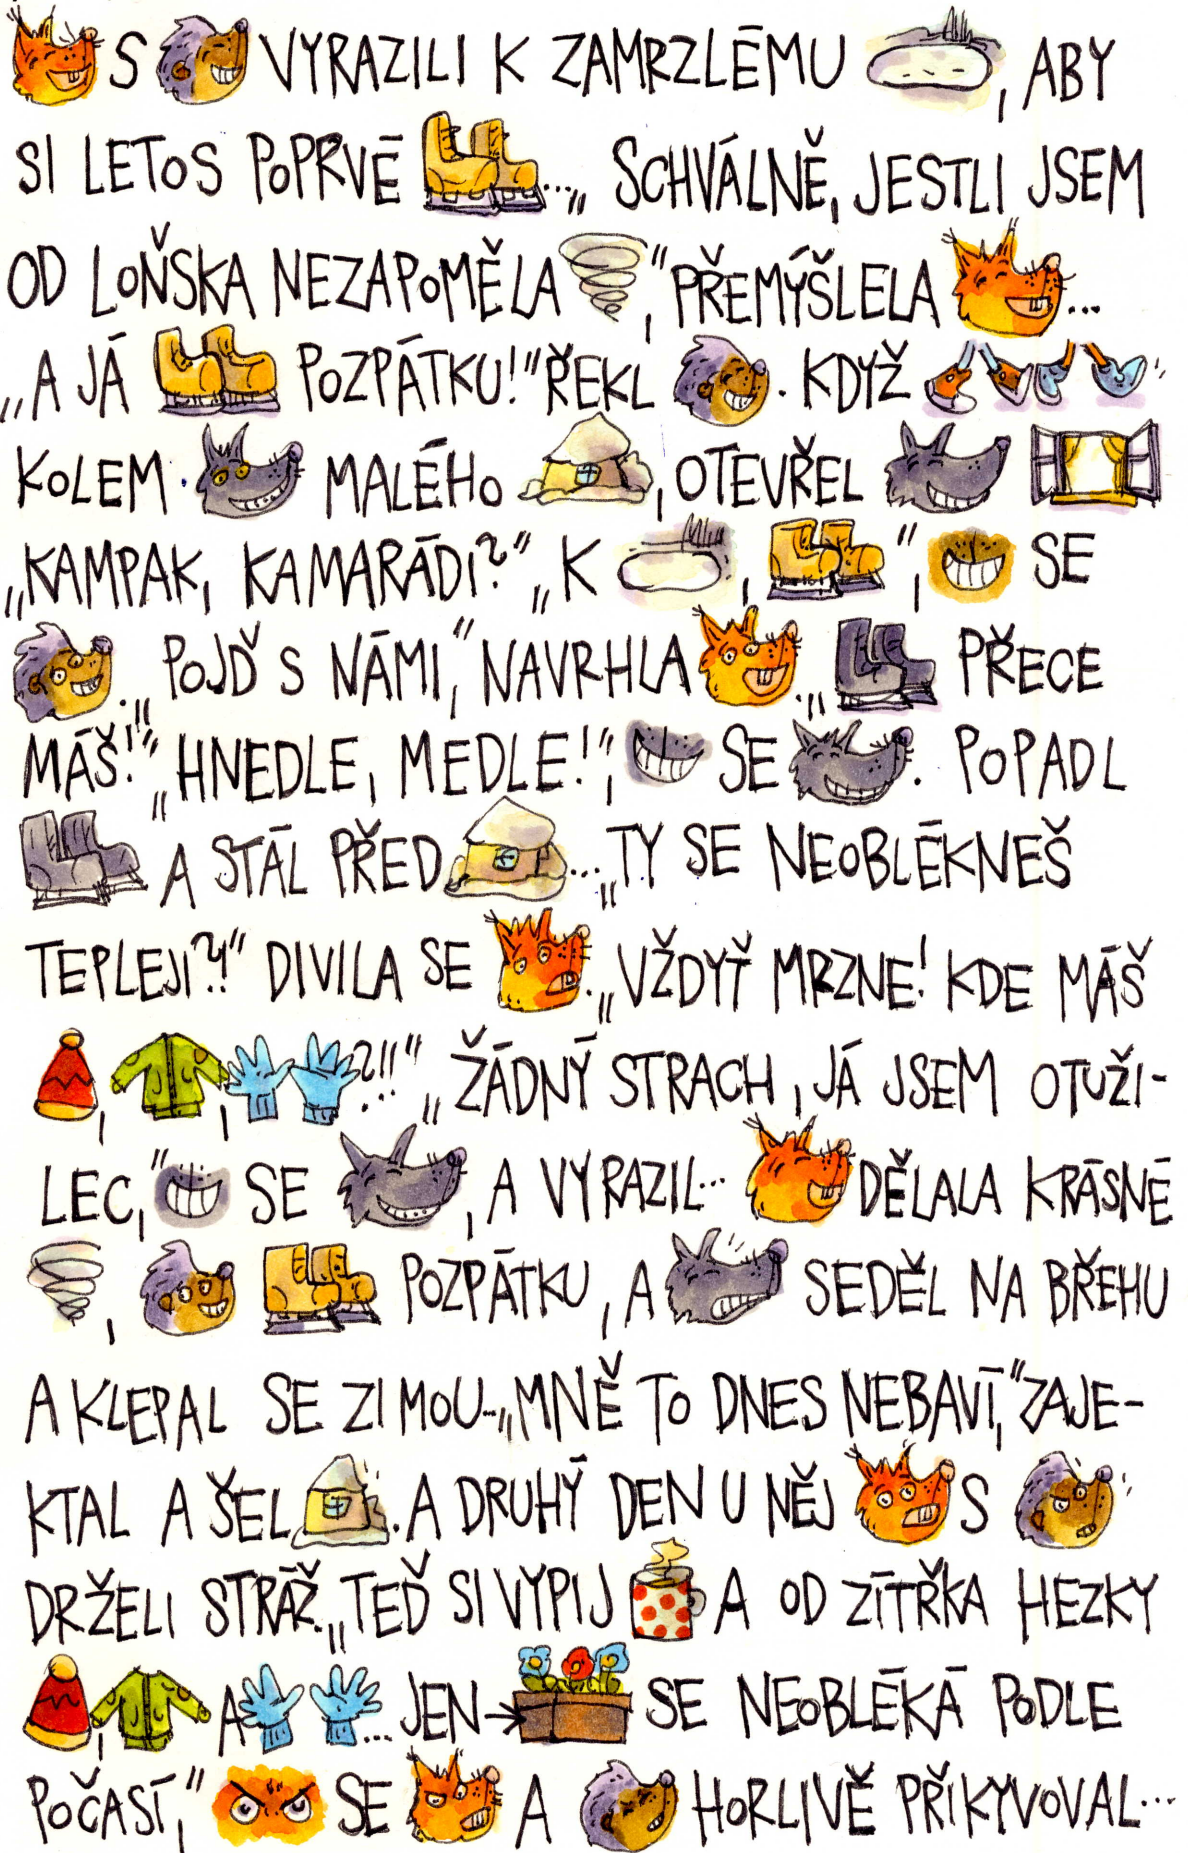 S VYRAZILI K ZAMRZLÉMU , ABY
SI LETOS POPRVÉ ... „SCHVÁLNĚ, JESTLI JSEM
OD LOŇSKA NEZAPOMĚLA ," PŘEMÝŠLELA ...
„A JÁ POZPÁTKU!" ŘEKL . KDYŽ
KOLEM MALÉHO , OTEVŘEL
„KAMPAK, KAMARÁDI?" „K , ", SE
. „POJĎ S NÁMI," NAVRHLA . „ PŘECE
MÁŠ!" „HNEDLE, MEDLE!", SE . POPADL
A STÁL PŘED ... „TY SE NEOBLÉKNEŠ
TEPLEJI?!" DIVILA SE . „VŽDYŤ MRZNE! KDE MÁŠ
, , ?!!" „ŽÁDNÝ STRACH, JÁ JSEM OTUŽI-
LEC," SE , A VYRAZIL... DĚLALA KRÁSNÉ
, POZPÁTKU, A SEDĚL NA BŘEHU
A KLEPAL SE ZIMOU... „MNĚ TO DNES NEBAVÍ," ZAJE-
KTAL A ŠEL . A DRUHÝ DEN U NĚJ S
DRŽELI STRÁŽ. „TEĎ SI VYPIJ A OD ZÍTŘKA HEZKY
, A ... JEN → SE NEOBLÉKÁ PODLE
POČASÍ," SE A HORLIVĚ PŘIKYVOVAL...